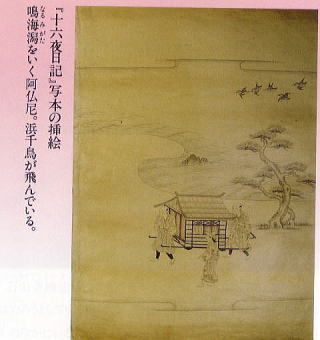 『十六夜日記』写本の挿絵
鳴海潟をいく阿仏尼。浜千鳥が飛んでいる。
なるみがた